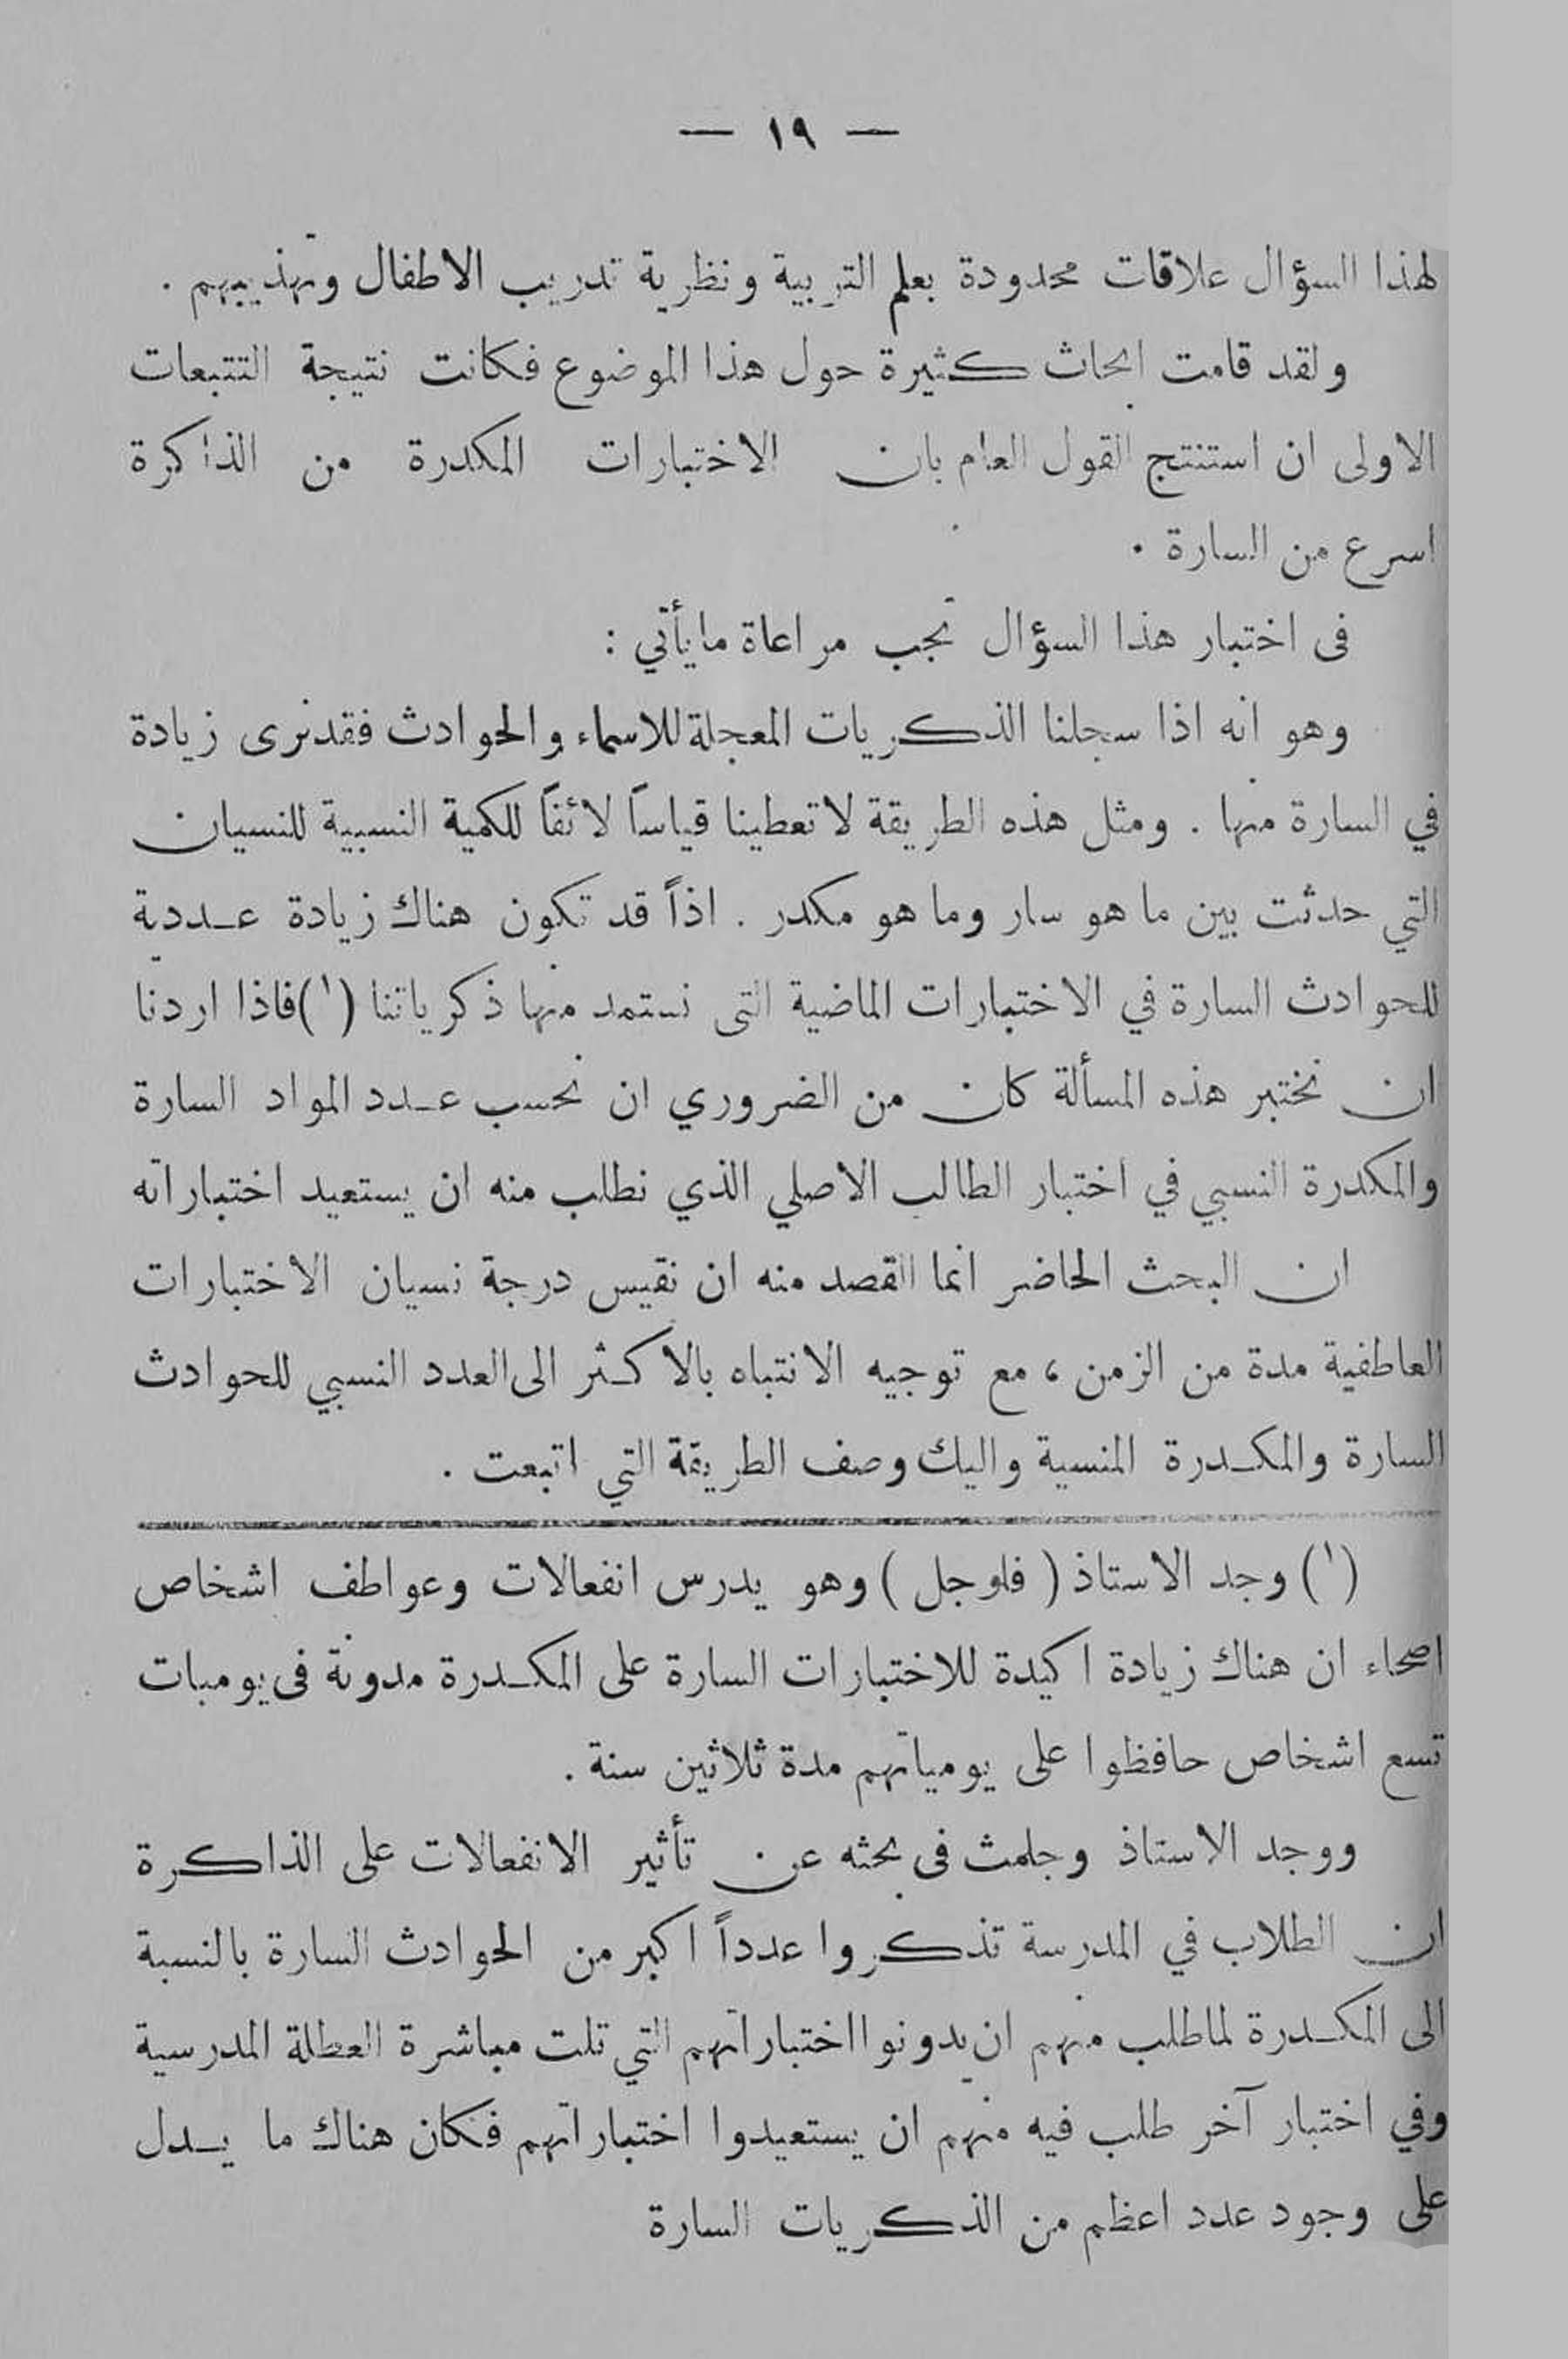 — ١٩ —
لهذا السؤال علاقات محدودة بعلم التربية ونظرية تدريب الاطفال وتهذيبهم .
ولقد قامت ابحاث كثيرة حول هذا الموضوع فكانت نتيجة التتبعات
الاولى ان استنتج القول العام بان الاختبارات المكدرة من الذاكرة
اسرع من السارة .
فى اختبار هذا السؤال تجب مراعاة ما يأتي :
وهو انه اذا سجلنا الذكريات المعجلة للاسماء والحوادث فقد نرى زيادة
في السارة منها . ومثل هذه الطريقة لا تعطينا قياساً لائقاً للكمية النسبية للنسيان
التي حدثت بين ما هو سار وما هو مكدر . اذاً قد تكون هناك زيادة عددية
للحوادث السارة في الاختبارات الماضية التى نستمد منها ذكرياتنا (١) فاذا اردنا
ان نختبر هذه المسألة كان من الضروري ان نحسب عدد المواد السارة
والمكدرة النسبي في اختبار الطالب الاصلي الذي نطلب منه ان يستعيد اختباراته
ان البحث الحاضر انما القصد منه ان نقيس درجة نسيان الاختبارات
العاطفية مدة من الزمن ، مع توجيه الانتباه بالاكثر الى العدد النسبي للحوادث
السارة والمكدرة المنسية واليك وصف الطريقة التي اتبعت .
(١) وجد الاستاذ ( فلوجل ) وهو يدرس انفعالات وعواطف اشخاص
اصحاء ان هناك زيادة اكيدة للاختبارات السارة على المكدرة مدونة فى يوميات
تسع اشخاص حافظوا على يومياتهم مدة ثلاثين سنة .
ووجد الاستاذ وجلمث فى بحثه عن تأثير الانفعالات على الذاكرة
ان الطلاب في المدرسة تذكروا عدداً اكبر من الحوادث السارة بالنسبة
الى المكدرة لما طلب منهم ان يدونوا اختباراتهم التي تلت مباشرة العطلة المدرسية
وفي اختبار آخر طلب فيه منهم ان يستعيدوا اختباراتهم فكان هناك ما يدل
على وجود عدد اعظم من الذكريات السارة